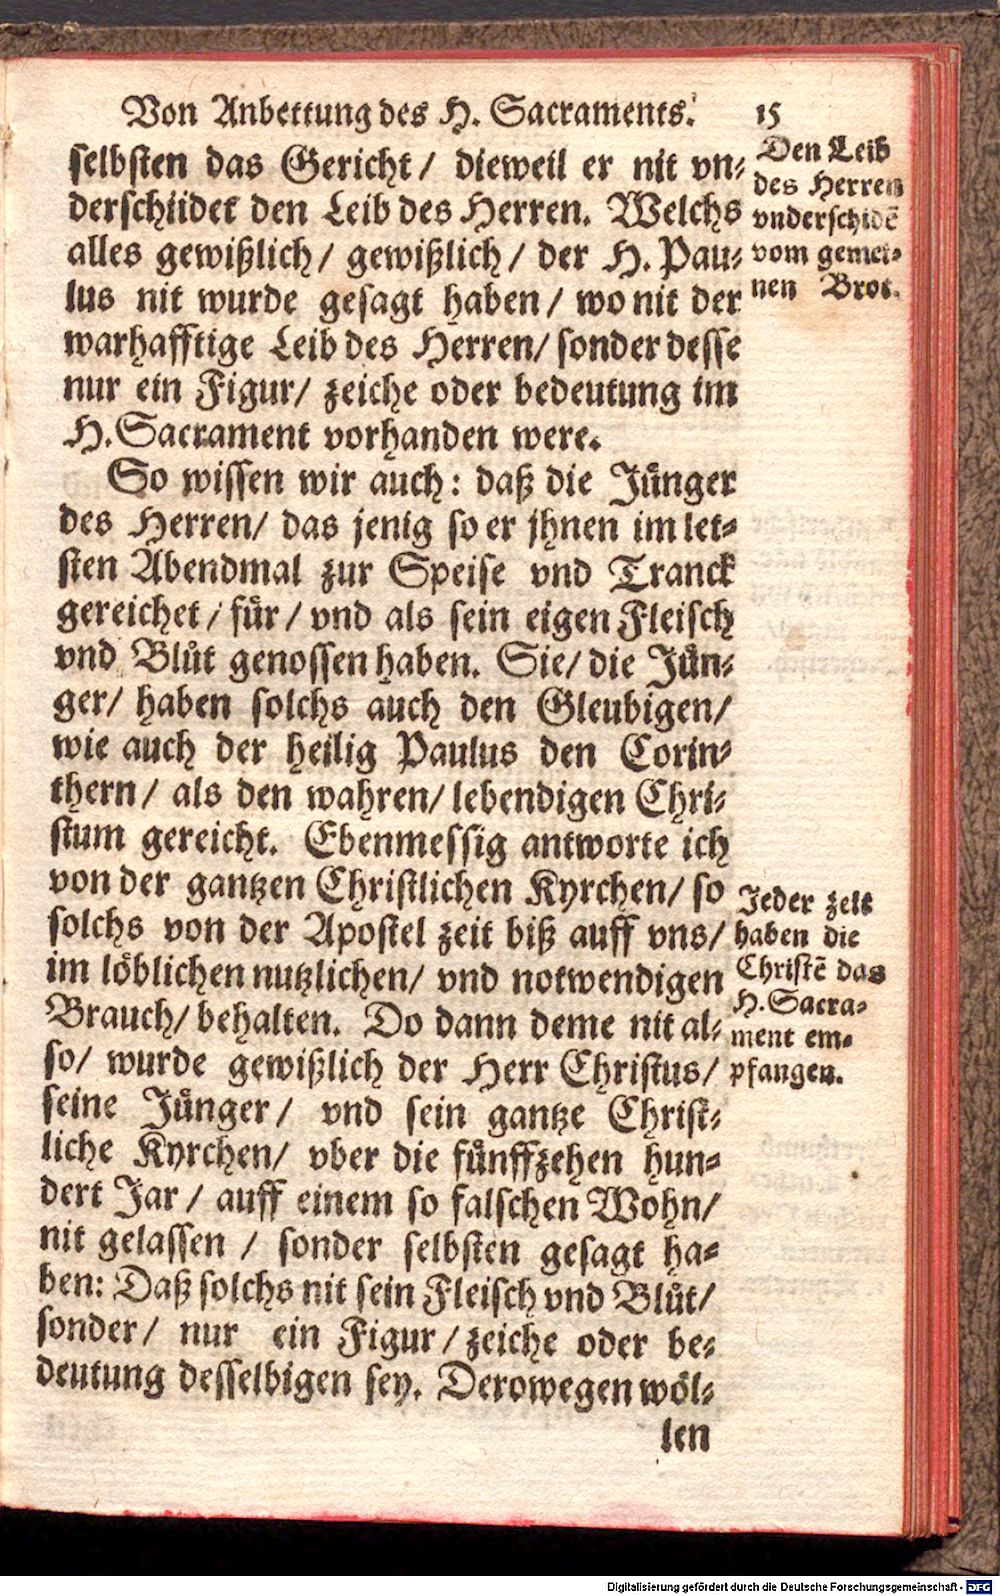 Von Anbettung des H. Sacraments. 15
selbsten das Gericht / dieweil er nit vn-
derschiidet den Leib des Herren. Welchs
alles gewißlich / gewißlich / der H. Pau-
lus nit wurde gesagt haben / wo nit der
warhafftige Leib des Herren / sonder desse
nur ein Figur / zeiche oder bedeutung im
H. Sacrament vorhanden were.
Den Leib
des Herren
vnderschidē
vom gemei-
nen Brot.
So wissen wir auch: daß die Jůnger
des Herren / das jenig so er jhnen im let-
sten Abendmal zur Speise vnd Tranck
gereichet / fůr / vnd als sein eigen Fleisch
vnd Blůt genossen haben. Sie / die Jůn-
ger / haben solchs auch den Gleubigen /
wie auch der heilig Paulus den Corin-
thern / als den wahren / lebendigen Chri-
stum gereicht. Ebenmessig antworte ich
von der gantzen Christlichen Kyrchen / so
solchs von der Apostel zeit biß auff vns /
im löblichen nutzlichen / vnd notwendigen
Brauch / behalten. Do dann deme nit al-
so / wurde gewißlich der Herr Christus /
seine Jůnger / vnd sein gantze Christ-
liche Kyrchen / vber die fůnffzehen hun-
dert Jar / auff einem so falschen Wohn /
nit gelassen / sonder selbsten gesagt ha-
ben: Daß solchs nit sein Fleisch vnd Blůt /
sonder / nur ein Figur / zeiche oder be-
deutung desselbigen sey. Derowegen wöl-
len
Jeder zeit
haben die
Christē das
H. Sacra-
ment em-
pfangen.
Digitalisierung gefördert durch die Deutsche Forschungsgemeinschaft - DFG